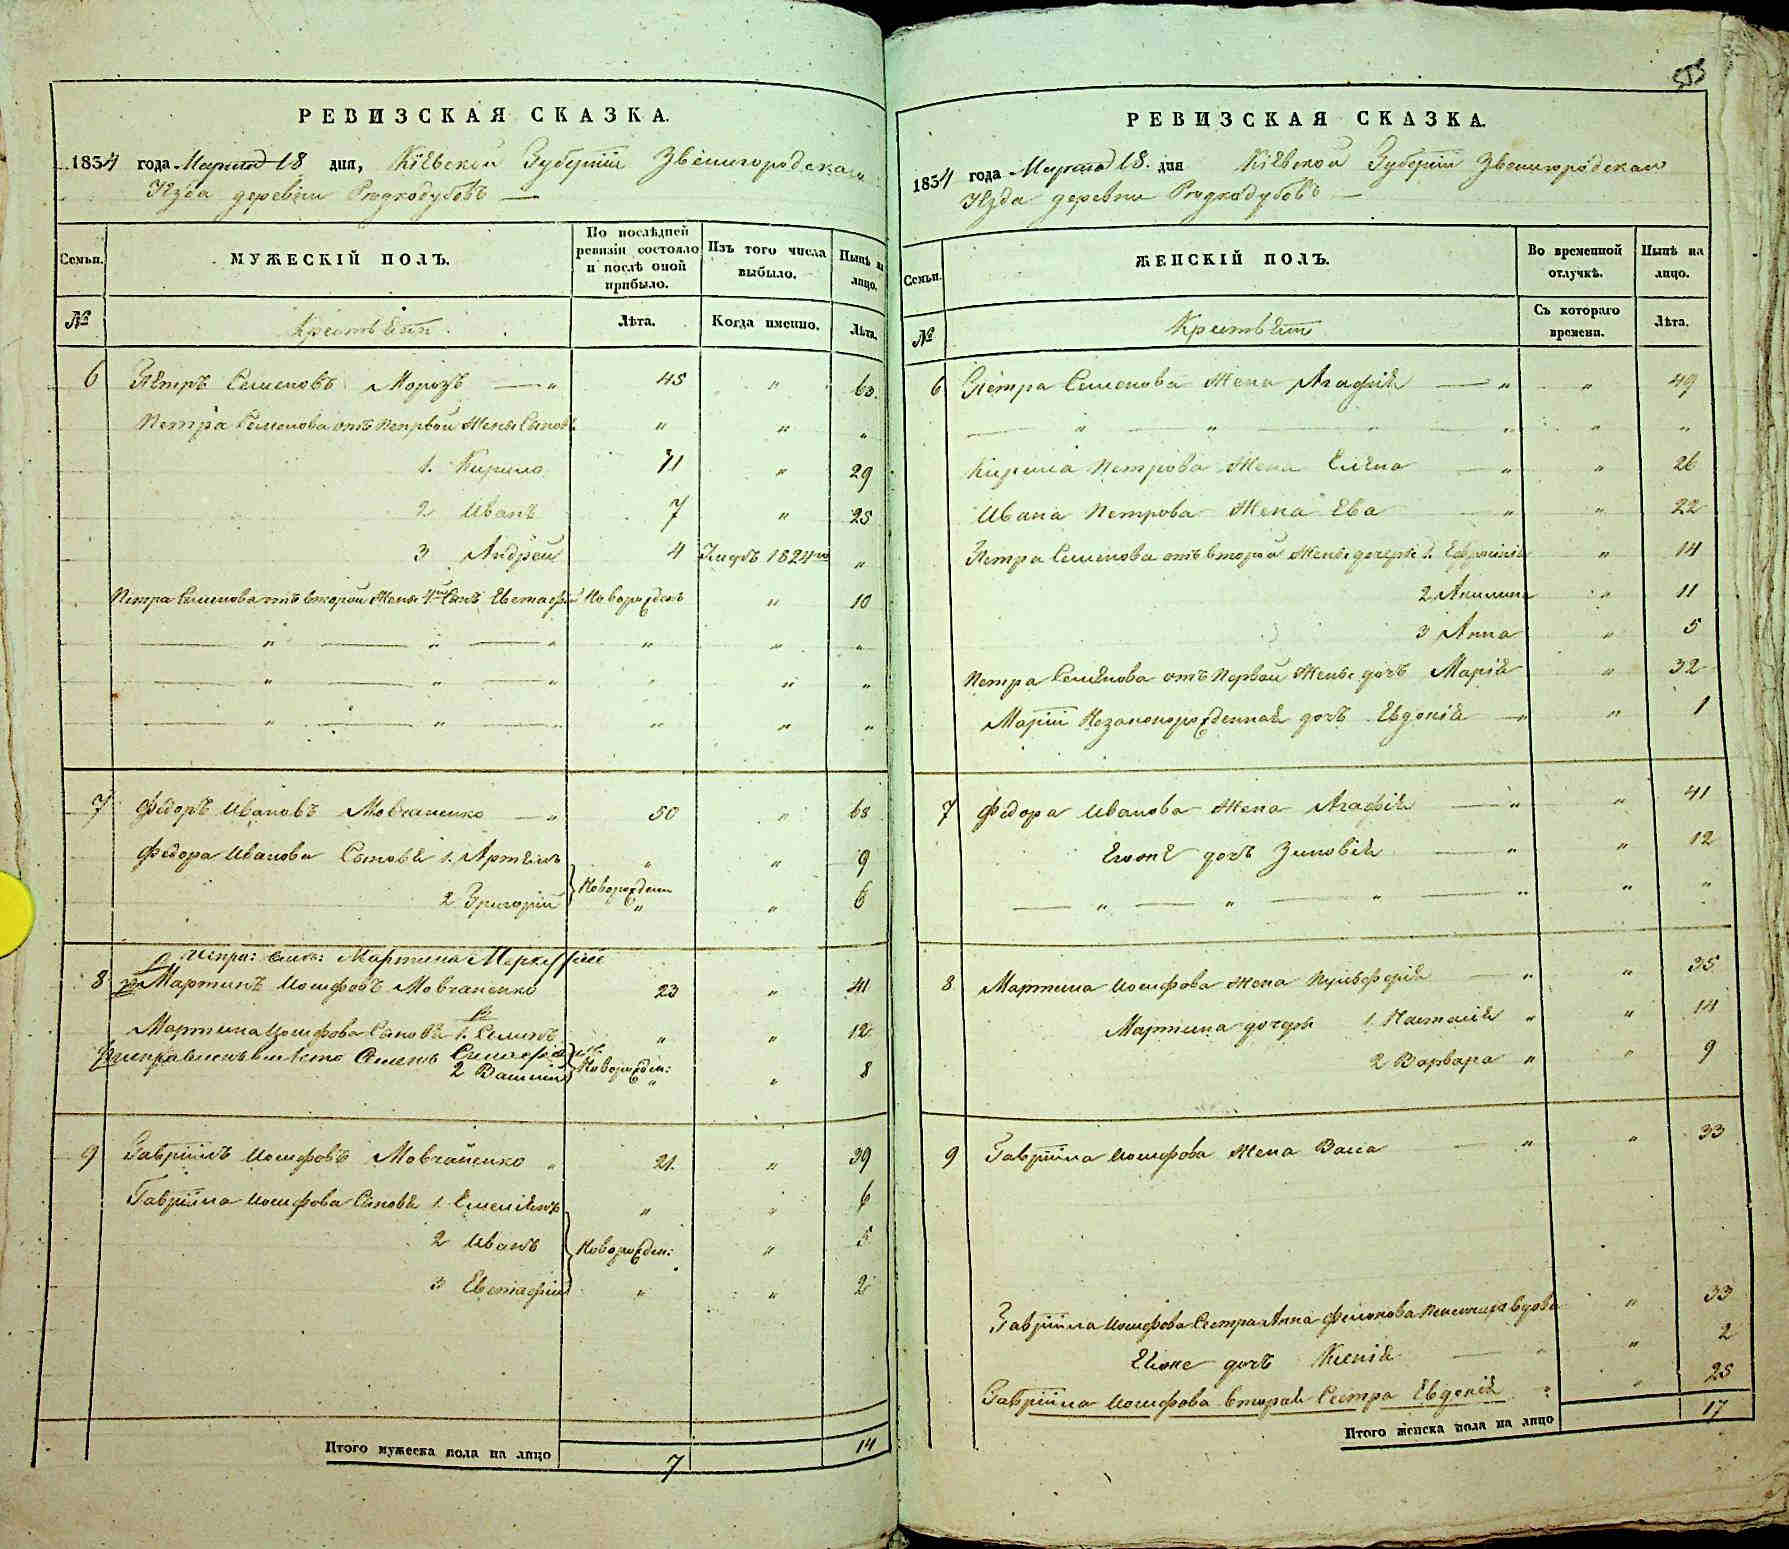 РЕВИЗСКАЯ СКАЗКА.
1834 года Марта 18 дня, Кіевской Губерніи Звенигородскаго
Уѣзда деревни Рѣдкодубовъ —
Семьи.
МУЖЕСКІЙ ПОЛЪ.
По послѣдней ревизіи состояло и послѣ оной прибыло.
Изъ того числа выбыло.
Нынѣ на лицо.
№
Крестьянъ
Лѣта.
Когда именно.
Лѣта.
6 Петръ Семеновъ Морозъ — " 45 " 63.
Петра Семенова отъ первой жены сыновья " " "
1. Кирило 11 " 29
2 Иванъ 7 " 25
3 Андрей 4 1824го "
Петра Семенова отъ второй жены 4й сынъ Евстафій Новорожденъ " 10
" " " " " "
" " " " " "
" " " " " "
7 Федоръ Ивановъ Мовчаненко — " 50 " 68
Федора Иванова Сыновья 1. Артемъ " " 9
2 Григорій Новорожден " " 6
Мартина
8 Мартинъ Иосифовъ Мовчаненко 23 " 41
Мартина Иосифова Сыновья 1. Семенъ " " 12
исправленъ вмѣсто Семенъ
2 Василій Новорожден: " " 8
9 Гавріилъ Иосифовъ Мовчаненко " 21. " 39
Гавріила Иосифова Сыновья 1. Емеліянъ " " 6
2 Иванъ Новорожден: " 5
3 Евстафій " " 2
Итого мужеска пола на лицо 7 14
555
РЕВИЗСКАЯ СКАЗКА.
1834 года Марта 18. дня Кіевской Губерніи Звенигородскаго
Уѣзда деревни Рѣдкодубовъ —
Семьи.
ЖЕНСКІЙ ПОЛЪ.
Во временной отлучкѣ.
Нынѣ на лицо.
№
Крестьянъ
Съ котораго времени.
Лѣта.
6 Петра Семенова Жена Агафія — " " 49
" " " " " "
Кирила Петрова Жена Елена — " " 26
Ивана Петрова Жена Ева " " 22
Петра Семенова отъ второй жены дочери 1. " 14
2 Акилина " 11
3 Анна " 5
Петра Семенова отъ первой жены дочь Марія " 32
Маріи Незаконорожденная дочь Евдокія — " " 1
7 Федора Иванова Жена Агафія — " " 41
Егоже дочь Зиновія — " " 12
" " " " " "
8 Мартина Иосифова Жена Пульхерія — " " 35
Мартина дочери 1. Настасія " " 14
2 Варвара " " 9
9 Гавріила Иосифова Жена Васса — " " 33
Гавріила Иосифова Сестра Анна вдова " 33
Еяже дочь Ксенія — " " 2
Гавріила Иосифова вторая Сестра Евдокія " " 25
Итого женска пола на лицо 17